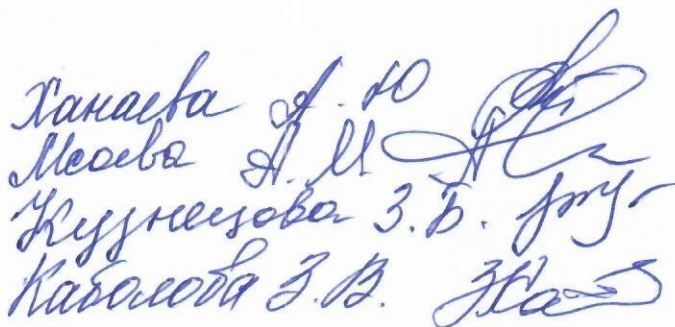 Ханаева А. Ю
Мсоева А. М
Кузнецова З. Б.
Каболова З. В.